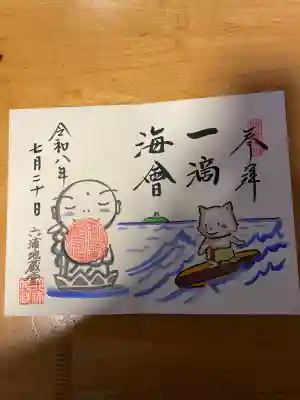 奉拝
一滴
海會
令和八年
七月二十日
六浦地蔵堂